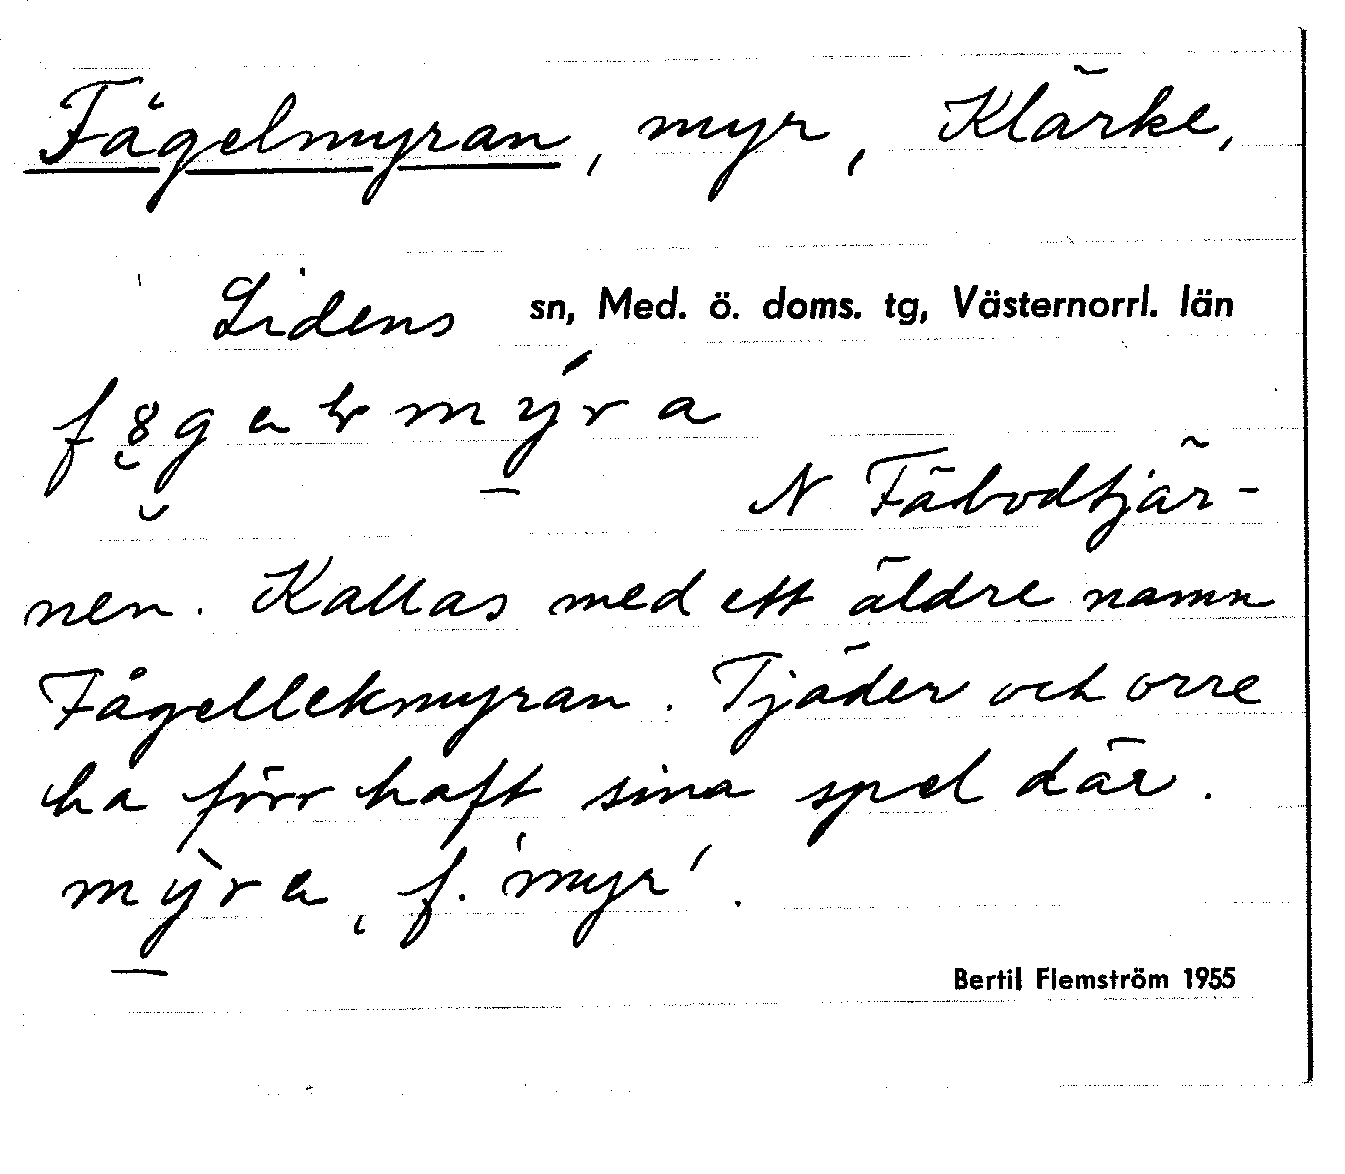 Fågelmyran, myr, Klärke,
Lidens sn, Med. ö. doms. tg, Västernorrl. län
N Fäbodtjär-
nen. Kallas med ett äldre namn
Fågellekmyran. Tjäder och orre
ha förr haft sina spel där.
mỳra, f. 'myr'.
Bertil Flemström 1955